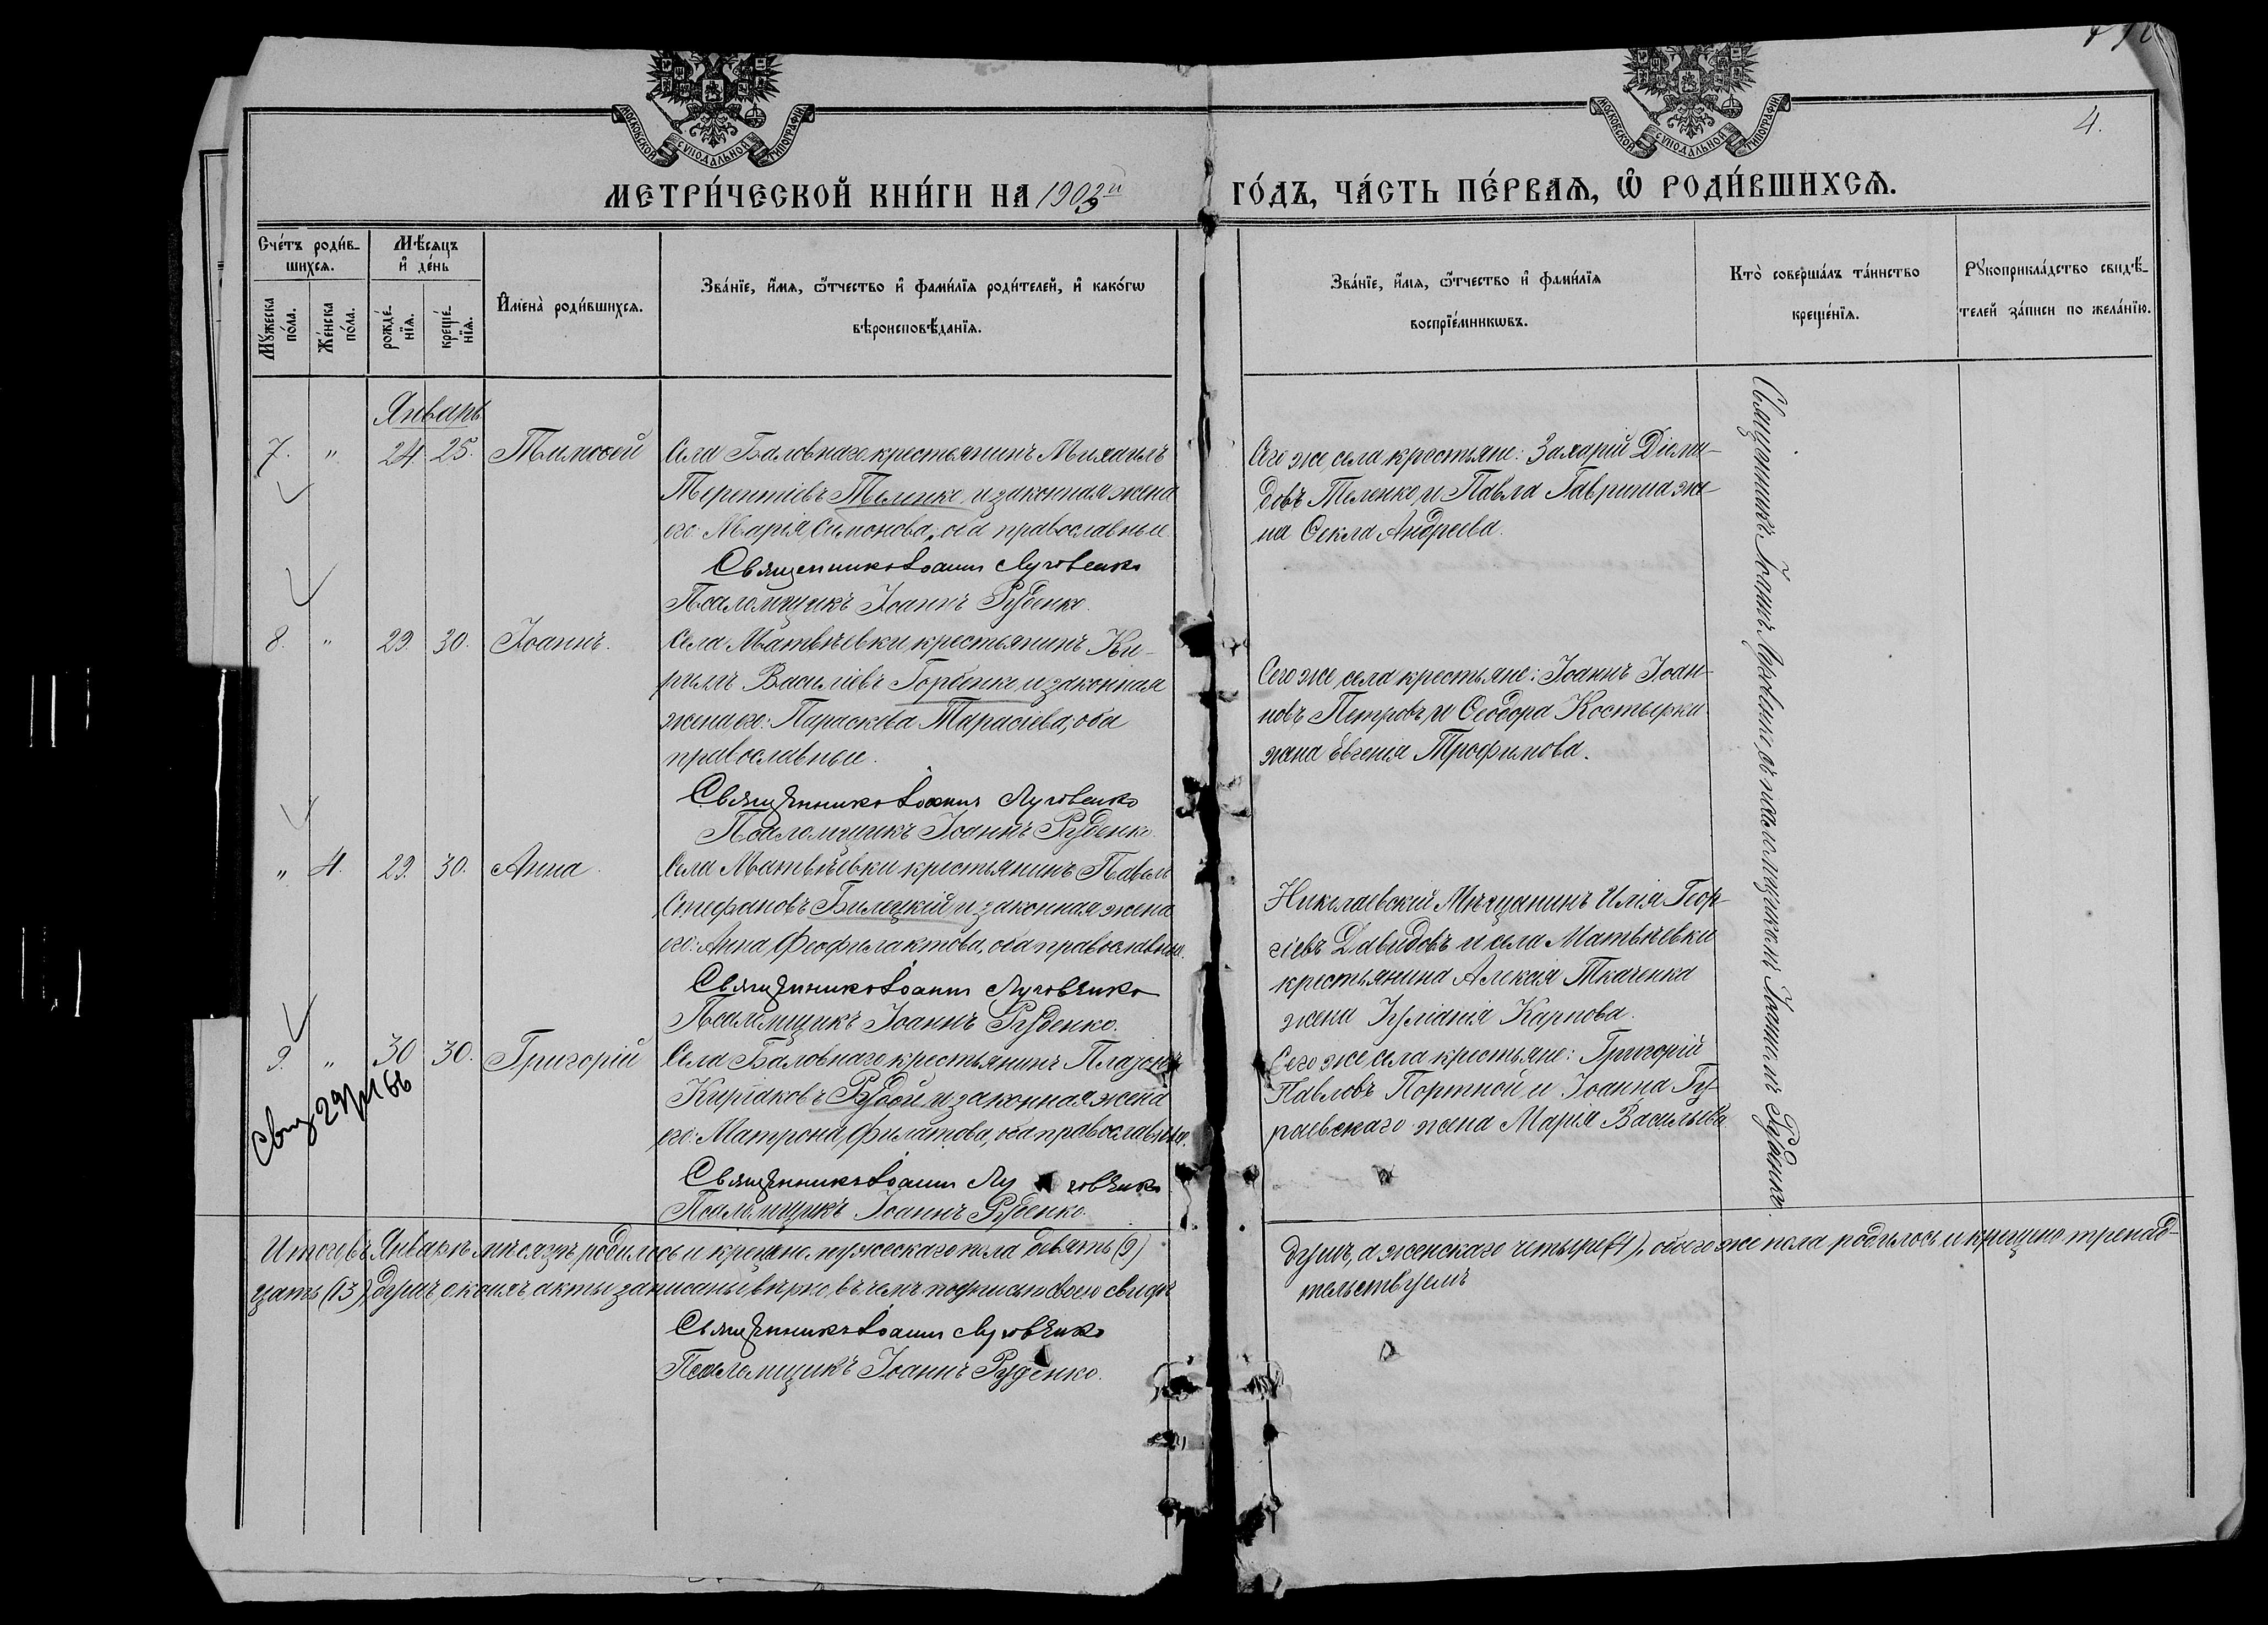 4.
МОСКОВСКОЙ СѴНОДАЛЬНОЙ ТИПОГРАФІИ
МОСКОВСКОЙ СѴНОДАЛЬНОЙ ТИПОГРАФІИ
МЕТРИ́ЧЕСКОЙ КНИ́ГИ НА 1903й ГО́ДЪ, ЧА́СТЬ ПЕ́РВАѦ, Ѡ҆ РОДИ́ВШИХСѦ.
Сче́тъ роди́в-
шихсѧ.
Мꙋ́жеска по́ла.
Же́нска по́ла.
Мѣ́сѧцъ
и҆ де́нь
рожде́-
нїѧ.
креще́-
нїѧ.
И҆мена̀ роди́вшихсѧ.
Зва́нїе, и҆́мѧ, ѻ҆́тчество и҆ фами́лїѧ роди́телей, и҆ како́гѡ
вѣроисповѣ́данїѧ.
Зва́нїе, и҆́мѧ, ѻ҆́тчество и҆ фами́лїѧ
воспрїе́мникѡвъ.
Кто̀ соверша́лъ та́инство
креще́нїѧ.
Рꙋкоприкла́дство свидѣ́-
телей за́писи по жела́нїю.
Январь
7. " 24. 25. Тимоѳей
Села Баловнаго крестьянинъ Михаилъ
Терентіевъ Теленко и законная жена
его Марія Симонова, оба православные
Священникъ Іоаннъ Луговенко
Псаломщикъ Іоаннъ Руденко.
Сего же села крестьяне: Захарій Діоми-
довъ Теленко и Павла Гавриша же-
на Ѳекла Андреева.
8. " 29. 30. Іоаннъ.
Села Матвѣевки крестьянинъ Ки-
риллъ Василіевъ Горбенко и законная
жена его: Параскева Тарасіева, оба
православные.
Священникъ Іоаннъ Луговенко
Псаломщикъ Іоаннъ Руденко.
Сего же села крестьяне: Іоаннъ Іоан-
новъ Петровъ и Ѳеодора Костырки
жена Евгенія Трофимова.
" 4. 29. 30. Анна.
Села Матвѣевки крестьянинъ Павелъ
Стефановъ Билецкій и законная жена
его: Анна Феофилактова, оба православные.
Священникъ Іоаннъ Луговенко
Псаломщикъ Іоаннъ Руденко.
Николаевскій Мѣщанинъ Илія Геор-
гіевъ Давидовъ и села Матвѣевки
крестьянина Алексія Ткаченка
жена Іуліанія Карпова.
9. " 30 30. Григорій
Села Баловнаго крестьянинъ Платонъ
Киріаковъ Рудой и законная жена
его: Матрона Филатова, оба православные.
Священникъ Іоаннъ Луговенко
Псаломщикъ Іоаннъ Руденко.
Сего же села крестьяне: Григорій
Павловъ Портной и Іоанна Гу-
раевскаго жена Марія Васильева
Священникъ Іоаннъ Луговенко съ псаломщикомъ Іоанномъ Руденко.
Итого въ Январѣ мѣсяцѣ родилось и крещено мужескаго пола девять (9) душъ, а женскаго четыре (4), обоего же пола родилось и крещено тренад-
цать (13) душъ, о коихъ акты записаны вѣрно, въ чемъ подписью своею свидѣ- тельствуемъ
Священникъ Іоаннъ Луговенко
Псаломщикъ Іоаннъ Руденко.